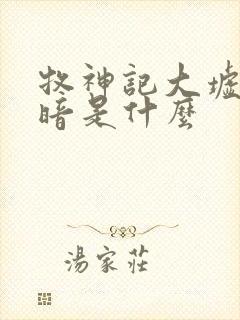 牧神記大墟
暗是什麼
湯家莊